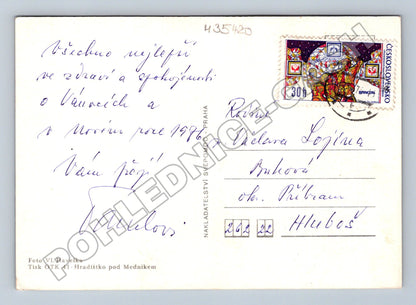 435420
Všechno nejlepší
ve zdraví a spokojenosti
o Vánocích a
v Novém roce 1976
Vám přejí
Foto Vl.
Tisk OTK 41 Hradištko pod Medníkem
NAKLADATELSTVÍ PRAHA
ČESKOSLOVENSKO
30h
Rodina
Václava
Buková
ok. Příbram
Hluboš
262 22
POHLEDNICE